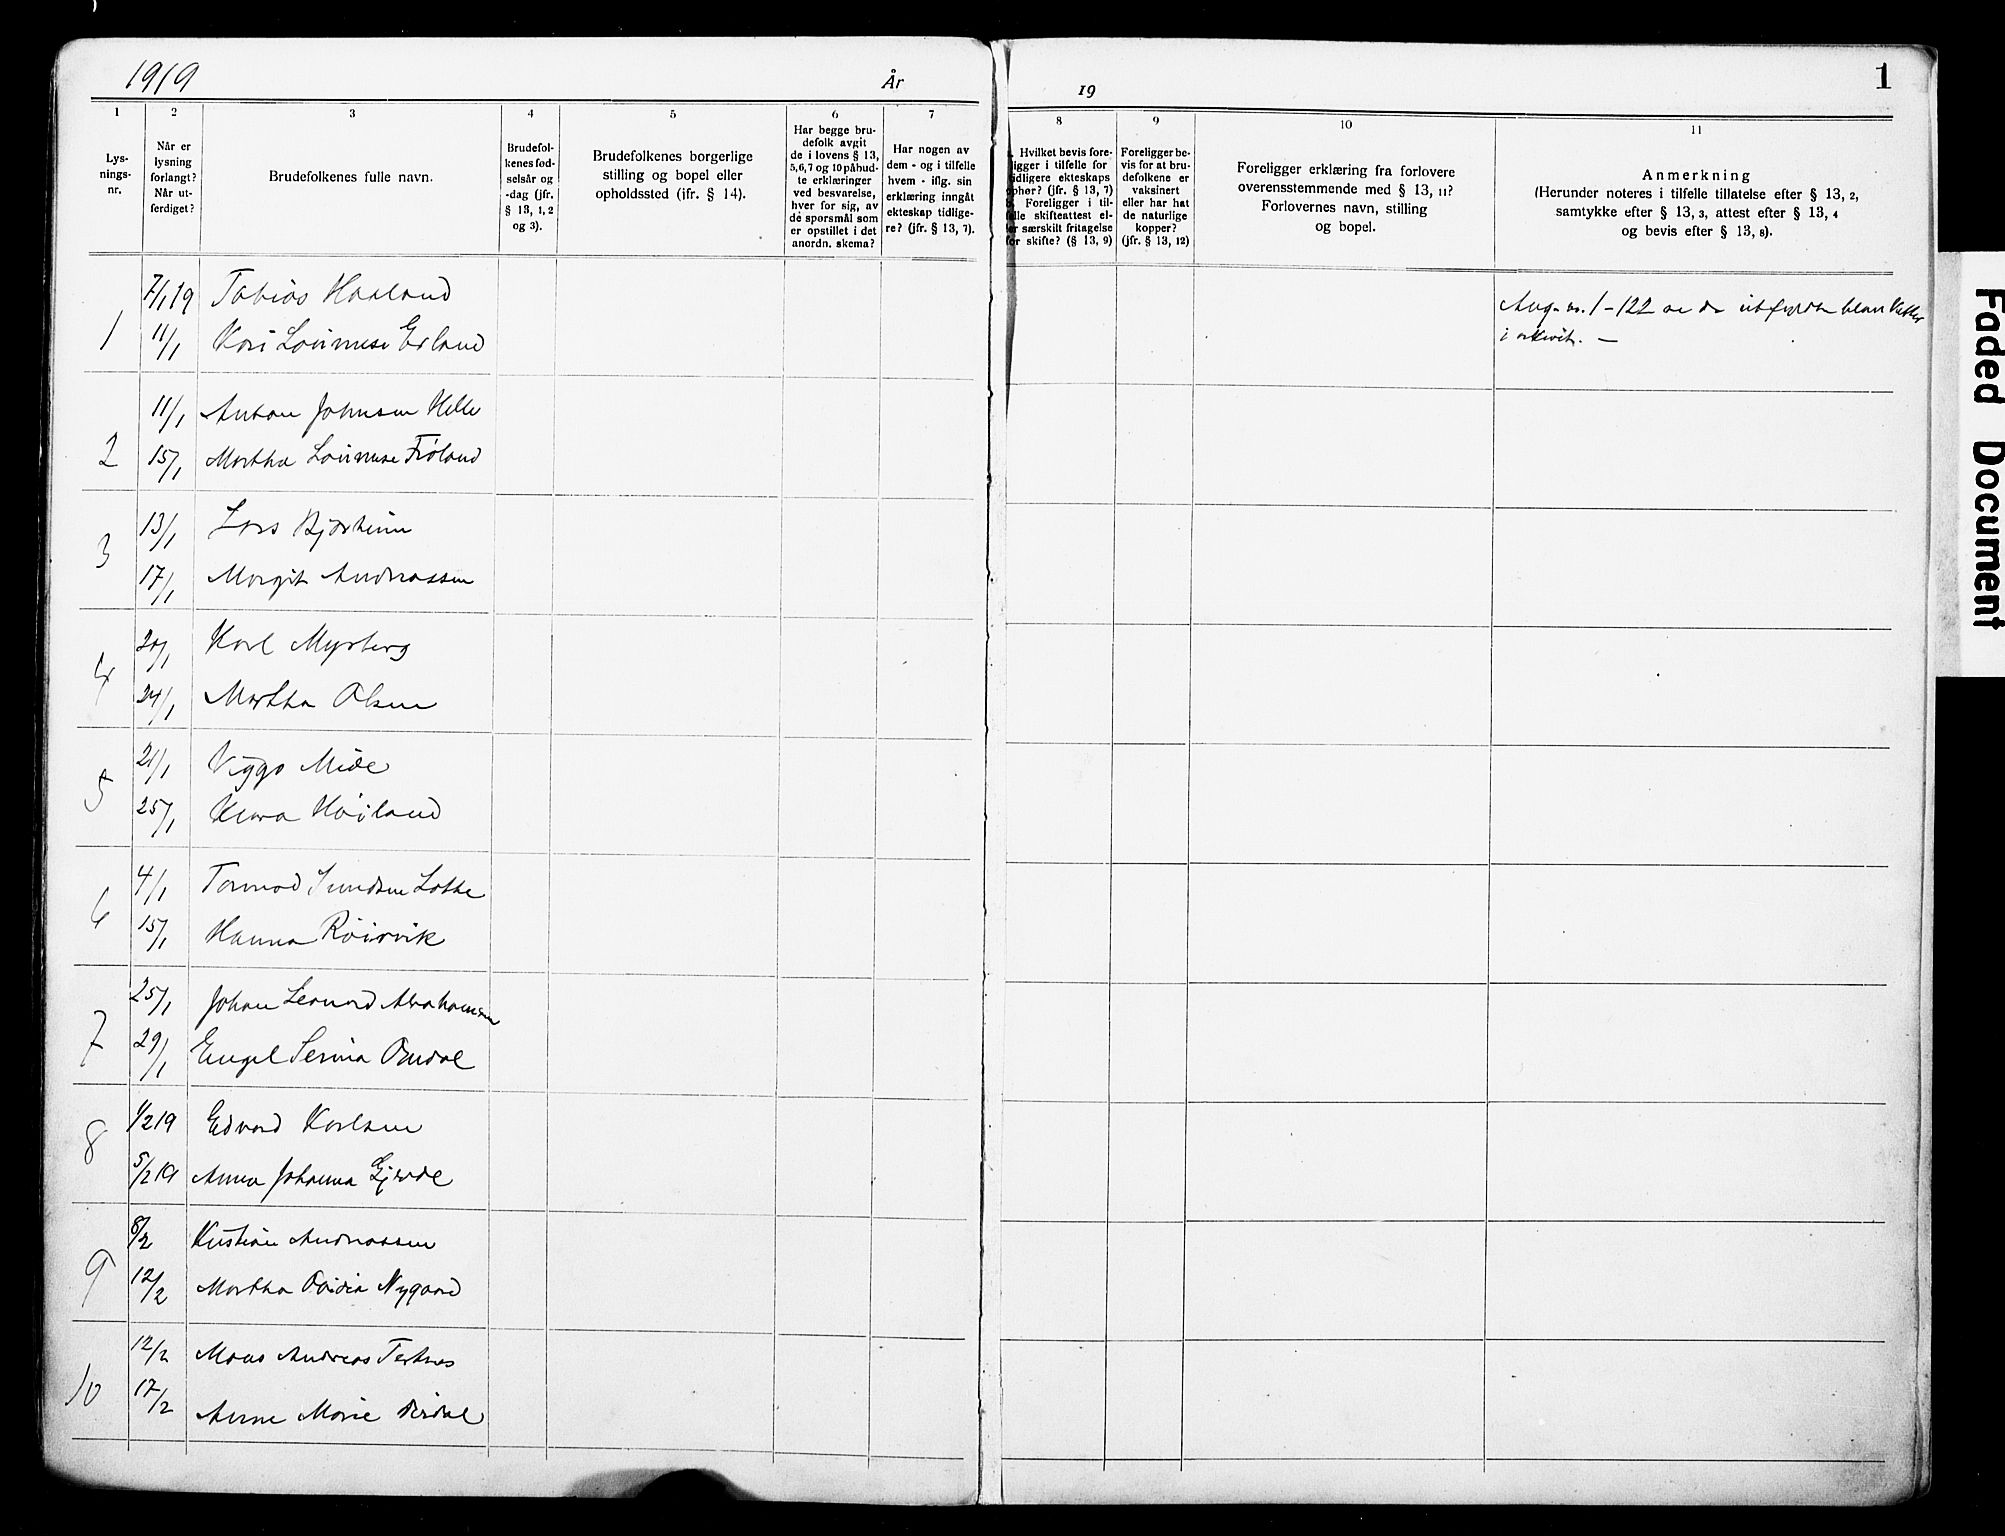 1919
År
19
1
1
2
3
4
5
6
7
8
9
10
11
Lys-
nings-
nr.
Når er
lysning
forlangt?
Når ut-
ferdiget?
Brudefolkenes fulle navn.
Brudefol-
kenes fød-
selsår og
-dag (jfr.
§ 13, 1, 2
og 3).
Brudefolkenes borgerlige
stilling og bopel eller
opholdssted (ifr. § 14).
Har begge bru-
defolk avgit
de i lovens § 13,
5,6,7 og 10 påbud-
te erklæringer
ved besvarelse,
hver for sig, av
de spørsmål som
er opstillet i det
anordn. skema?
Har nogen av
dem - og i tilfelle
hvem - iflg. sin
erklæring inngåt
ekteskap tidlige-
re? (jfr. § 13, 7).
Hvilket bevis fore-
ligger i tilfelle for
tidligere ekteskaps
ophør? (jfr. § 13, 7)
Foreligger i til-
felle skifteattest el-
ler særskilt fritagelse
for skifte? (§ 13, 9)
Foreligger be-
vis for at bru-
defolkene er
vaksinert
eller har hat
de naturlige
kopper?
(jfr. § 13, 12)
Foreligger erklæring fra forlovere
overensstemmende med § 13, 11?
Forlovernes navn, stilling
og bopel.
Anmerkning
(Herunder noteres i tilfelle tillatelse efter § 13, 2,
samtykke efter § 13, 3, attest efter § 13, 4
og bevis efter § 13, 8).
1
7/1 19 Tobias Haaland
11/1 Kari Lovinuse Erland
Ang. nr. 1-122 se de utfyldte blanketter
i arkivet. —
2
11/1 Anton Johnsen Helle
15/1 Martha Lovinuse Frøland
3
13/1 Lars Bjørheim
17/1 Margit Andreassen
4
20/1 Karl Myrberg
24/1 Martha Olsen
5
21/1 Viggo Mide
25/1 Klara Høiland
6
4/1 Tormod Lothe
15/1 Hanna Røirvik
7
25/1 Johan Leonard Abrahamsen
29/1 Engel Serina Omdal
8
1/2 19 Edvard Karlsen
5/2 19 Anna Johanna Gjerde
9
8/2 Kristian Andreassen
12/2 Martha Ovidia Nygaard
10
12/2 Mons Andreas Tertnes
17/2 Anne Marie Dirdal
Faded Document